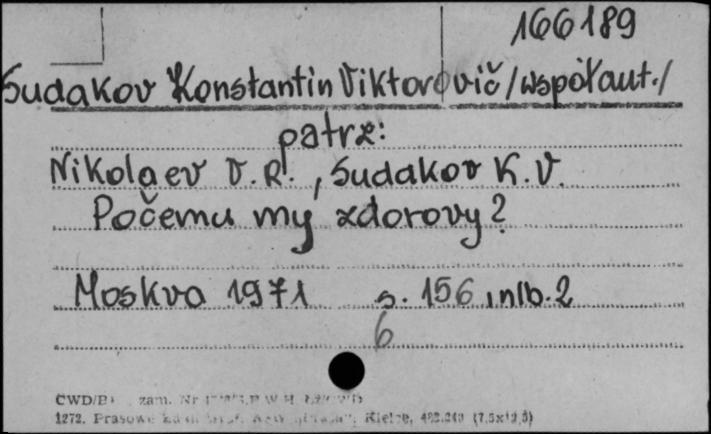 166189
Sudakov Konstantin Viktorovič /współaut./
patrz:
Nikolaev V.R., Sudakov K.V.
Počemu my zdorovy?
Moskva 1971 s. 156, nlb. 2
6
CWD/B zam. Nr
1272. Prasowe Kielce, (7,5x12,5)